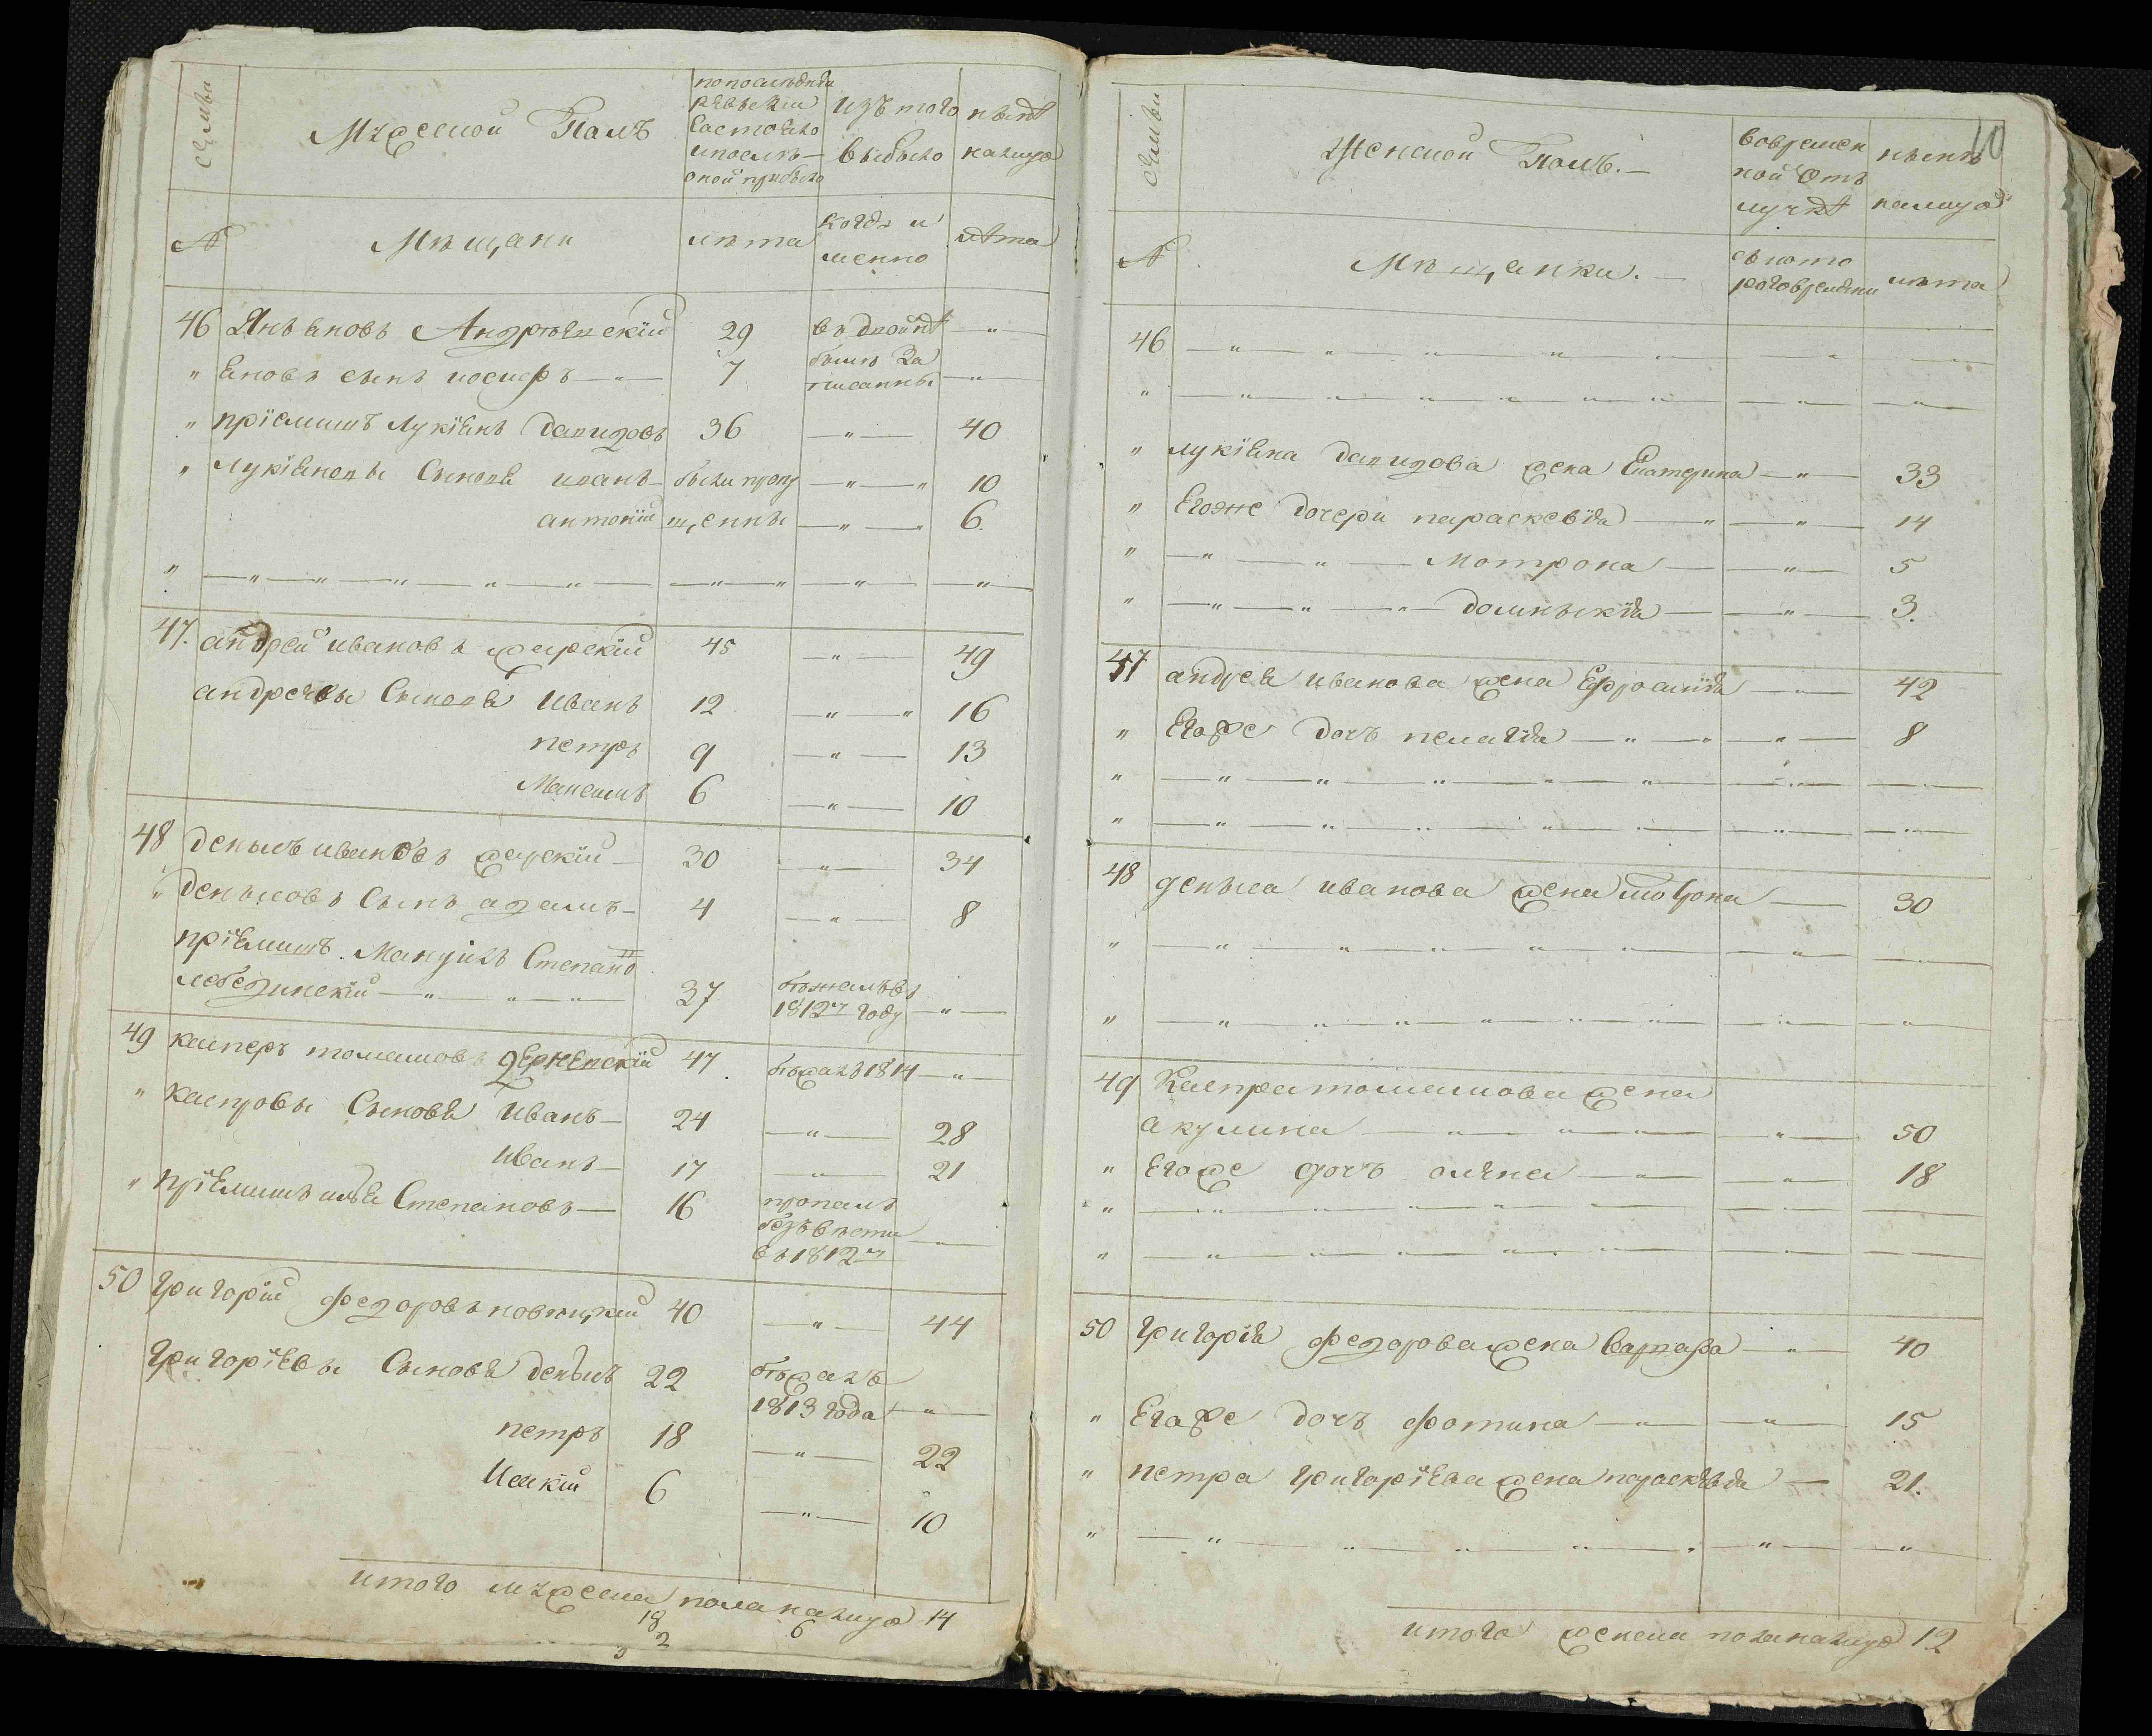 семьи
Мужеской Полъ
попоследней
ревезкии
Состояло
ипослѣ
оной прибыло
изъ того
выбыло
нынѣ
налицо
№
Мѣщани
лѣта
когда и
менно
лѣта
46 Янъ яновъ Андріевскїй 29 въ двойнѣ „
„ яновъ сынъ иосифъ 7 были за
писанны „
„ прїемишъ лукїянъ давидовъ 36 „ 40
„ лукїяновы Сыновя иванъ были пропу „ 10
антонїй щенны „ 6
47. андрей ивановъ жерскїй 45 „ 49
андреевы Сыновя Иванъ 12 „ 16
петръ 9 „ 13
Максимъ 6 „ 10
48 денысъ ивановъ жерскїй 30 „ 34
„ денысовъ Сынъ адамъ 4 „ 8
прїемишъ Мануилъ Степано
лебединскїй 37 бѣжалъ въ
1812м году „
49 касперъ томашовъ 47 бѣжалъ 1814 „
„ каспровы Сыновя Иванъ 24 „ 28
Иванъ 17 „ 21
„ прїемишъ илья Степановъ 16 пропалъ
безъвѣсти
въ 1812м „
50 григорїй федоровъ новицкий 40 „ 44
григорїевы Сыновя денысъ 22 бѣжалъ
1813 года „
петръ 18 „ 22
Исакїй 6 „ 10
итого мужеска пола налицо 14
18
2 6
10
семьи
Женской Полъ.
вовремен
ной Отъ
лучкѣ
нынѣ
налицо
№
Мѣщанки.
съ кото
роговремени
лѣта
46 „
„
„ лукїяна давидова жена Екатерина „ 33
„ Егоже дочери параскевїя „ 14
„ Мотрона „ 5
„ домникїя „ 3.
47 андрея иванова жена Ефросинїя „ 42
„ Егоже дочъ пелагїя „ 8
„
„
48 дениса иванова жена мотрона 30
„
„
49 Каспра томашова жена
акулина „ 50
„ Егоже дочъ олена „ 18
„
„
50 григорїя федорова жена Варвара „ 40
„ Егоже дочъ фотина „ 15
„ петра григорїева жена параскевїя 21.
„
итого женска пола налицо 12